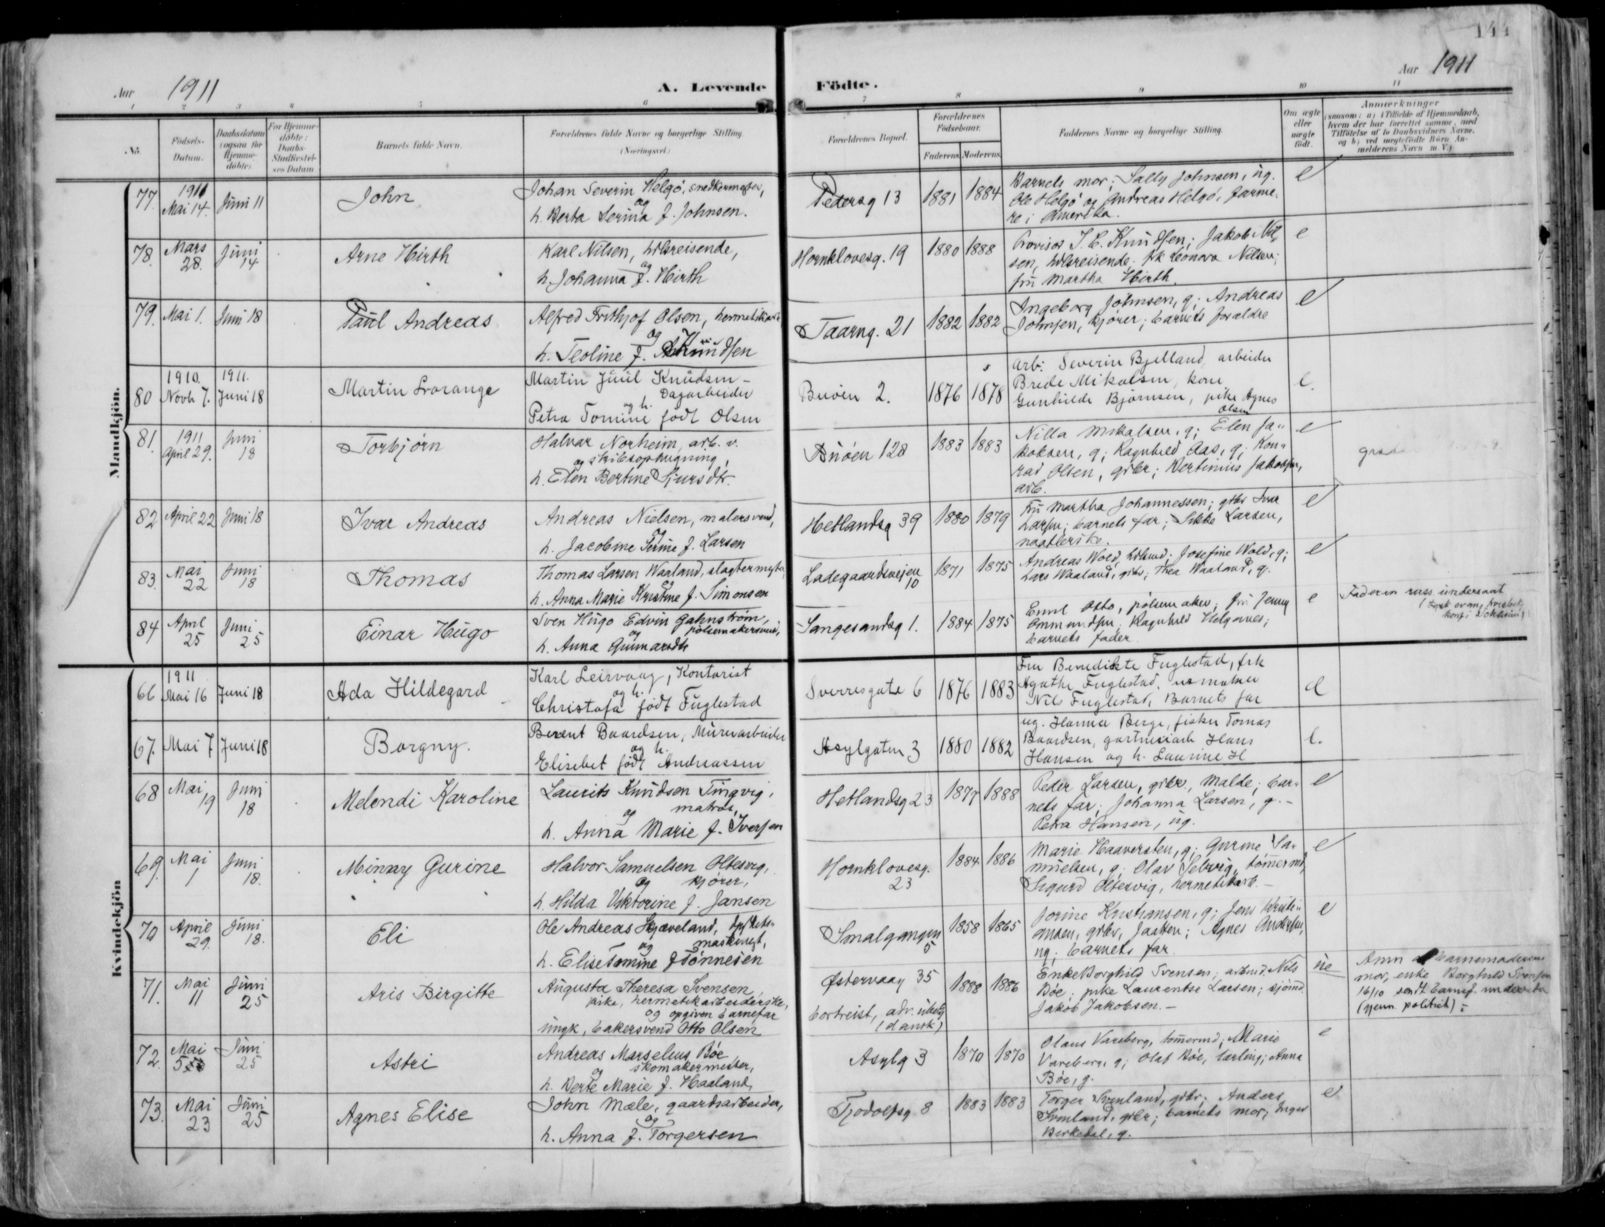 144
Aar 1911 A. Levende Födte. Aar 1911
1 2 3 4 5 6 7 8 9 10 11
No. Födsels-Datum. Daabsdatum (ogsaa for Hjemmedöbte). For Hjemmedöbte: Daabs-Stadfæstelses Datum Barnets fulde Navn. Forældrenes fulde Navne og borgerlige Stilling. (Næringsvei) Forældrenes Bopæl. Forældrenes Födselsaar. Faderens. Moderens. Faddernes Navne og borgerlige Stilling. Om ægte eller uægte födt. Anmerkninger
Mandkjön.
77. 1911 Mai 14. Juni 11 John
Johan Severin Helgö, snedkermester,
og
h. Berta Serina f. Johnsen.
Pedersg 13 1881 1884
Barnets mor; Sally Johnsen, ug.
Ole Helgö og Andreas Helgö, farme-
re i Amerika.
e
78. Mars 28. Juni 14 Arne Hirth
Karl Nilsen, hdlsreisende,
og
h. Johanna f. Hirth
Hornklovesg. 19 1880 1888
Provisor S. C. Knudsen; Jakob Nil-
sen, hdlsreisende, frk Leonora Nilsen;
fru Martha Hirth.
e
79. Mai 1. Juni 18 Paul Andreas
Alfred Frithjof Olsen, hermetikarb
og
h. Teoline f.
Taarng. 21 1882 1882
Ingeborg Johnsen, g; Andreas
Johnsen, kjörer; barnets forældre
e
80 1910. Novb 7. 1911. Juni 18 Martin Lorange
Martin Juul Knudsen -
Dagarbeider
og h.
Petra Tomine födt Olsen
Buöen 2. 1876 1878
Arb: Severin Bjelland arbeider
Brede Mikalsen, kone
Gunhilde Bjørnsen, pike Agnes
Olsen
e.
81. 1911 April 29. Juni 18 Torbjørn
Halvar Norheim, arb. v.
og skibsophugning,
h. Elen Bertine Sjursdtr.
Buöen 128 1883 1883
Nilla Mikalsen, g; Elen Ja-
koksen, g; Ragnhild Aas, g; Kon-
rad Olsen, grbr; Bertinius Jakobsen,
arb.
e
82 April 22 Juni 18 Ivar Andreas
Andreas Nielsen, malersvend,
og
h. Jacobine Serine f. Larsen
Hetlandsg 39 1880 1879
Fru Martha Johannessen; grbr Ivar
Larsen; barnets far; Sikke Larsen,
e
83. Mai 22 Juni 18 Thomas
Thomas Larsen Waaland, slagtermester,
og
h. Anna Marie Kristine f. Simonsen
Ladegaardsveien 10 1871 1875
Andreas Wold, Josefine Wold, g;
Lars Waaland, grbr; Thea Waaland, g.
e
84 April 25 Juni 25 Einar Hugo
Sven Hugo Edvin Gahnström,
og pölsemakersvend,
h. Anna Gunnarsdtr
Langesandsg 1. 1884 1875
Emil Otto, pölsemaker; fru Jenny
Ragnhild Helgesnes;
barnets fader
e
Faderen russ. undersaat
Kvindekjön
66 1911 Mai 16 Juni 18 Ada Hildegard
Karl Leirvaag, Kontorist
og h.
Christofa födt Fuglestad
Sverresgate 6 1876 1883
Fru Benedikte Fuglestad, frk
Agathe Fuglestad,
Nils Fuglestad, Barnets far
e
67. Mai 7 Juni 18 Borgny.
Berent Baardsen, Murerarbeider
og h.
Elisebet födt Andreassen
Asylgaten 3 1880 1882
ug. Hanna Berge, fisker Tomas
Baardsen, gartnerarb Hans
Hansen og h. Laurine H
e.
68 Mai 19 Juni 18 Melendi Karoline
Laurits Knudsen Tingvig,
og matros,
h. Anna Marie f. Iversen
Hetlandsg 23 1877 1888
Peder Larsen, grbr, Malde; bar-
nets far; Johanna Larsen, g. -
Petra Hansen, ug.
e
69. Mai 1 Juni 18. Minny Gurine
Halvor Samuelsen Oltesvig,
og kjörer,
h. Hilda Viktorine f. Jansen
Hornklovesg. 23 1884 1886
Marie Haaversten, g; Gurine Sa-
muelsen, g; Olav Selvig, tömmermd,
Sigurd Oltesvig, hermetikarb. -
e
70 April 29. Juni 18. Eli
Ole Andreas Skjæveland,
og maskinist,
h. Elise Tomine f Tönnesen
Smalgangen 5 1858 1865
Jorine Kristiansen, g; Jens Kristi-
ansen, grbr, Jaatten; Agnes Andersen,
ug; barnets far
e
71. Mai 11 Juni 25 Aris Birgitte
Augusta Theresa Svensen,
pike, hermetikarbeiderske,
og opgiven barnefar
ungk, bakersvend Otto Olsen
Østervaag 35
bortreist, adr. ubekj
(dansk)
1888 1886
Enke Borghild Svensen; arbmd. Nils
Böe; pike Laurentse Larsen; sjömd
Jakob Jakobsen. -
ue
Anm barnemoderens
mor, enke Borghild Svensen
72. Mai 5 Juni 25 Astri
Andreas Marselius Böe,
og skomakermester,
h. Berte Marie f. Haaland,
Asylg 3 1870 1870
Olaus Vareberg, tömmermd; Marie
Vareberg, g; Olaf Böe, lærling; Anna
Böe, g.
e
73. Mai 23 Juni 25 Agnes Elise
John Mæle, gaardsarbeider,
og
h. Anna f. Torgersen
Tjodolfsg 8 1883 1883
Torger Svenland, grbr; Anders
Svenland, grbr; barnets mor; Inger
Birkedal, g.
e